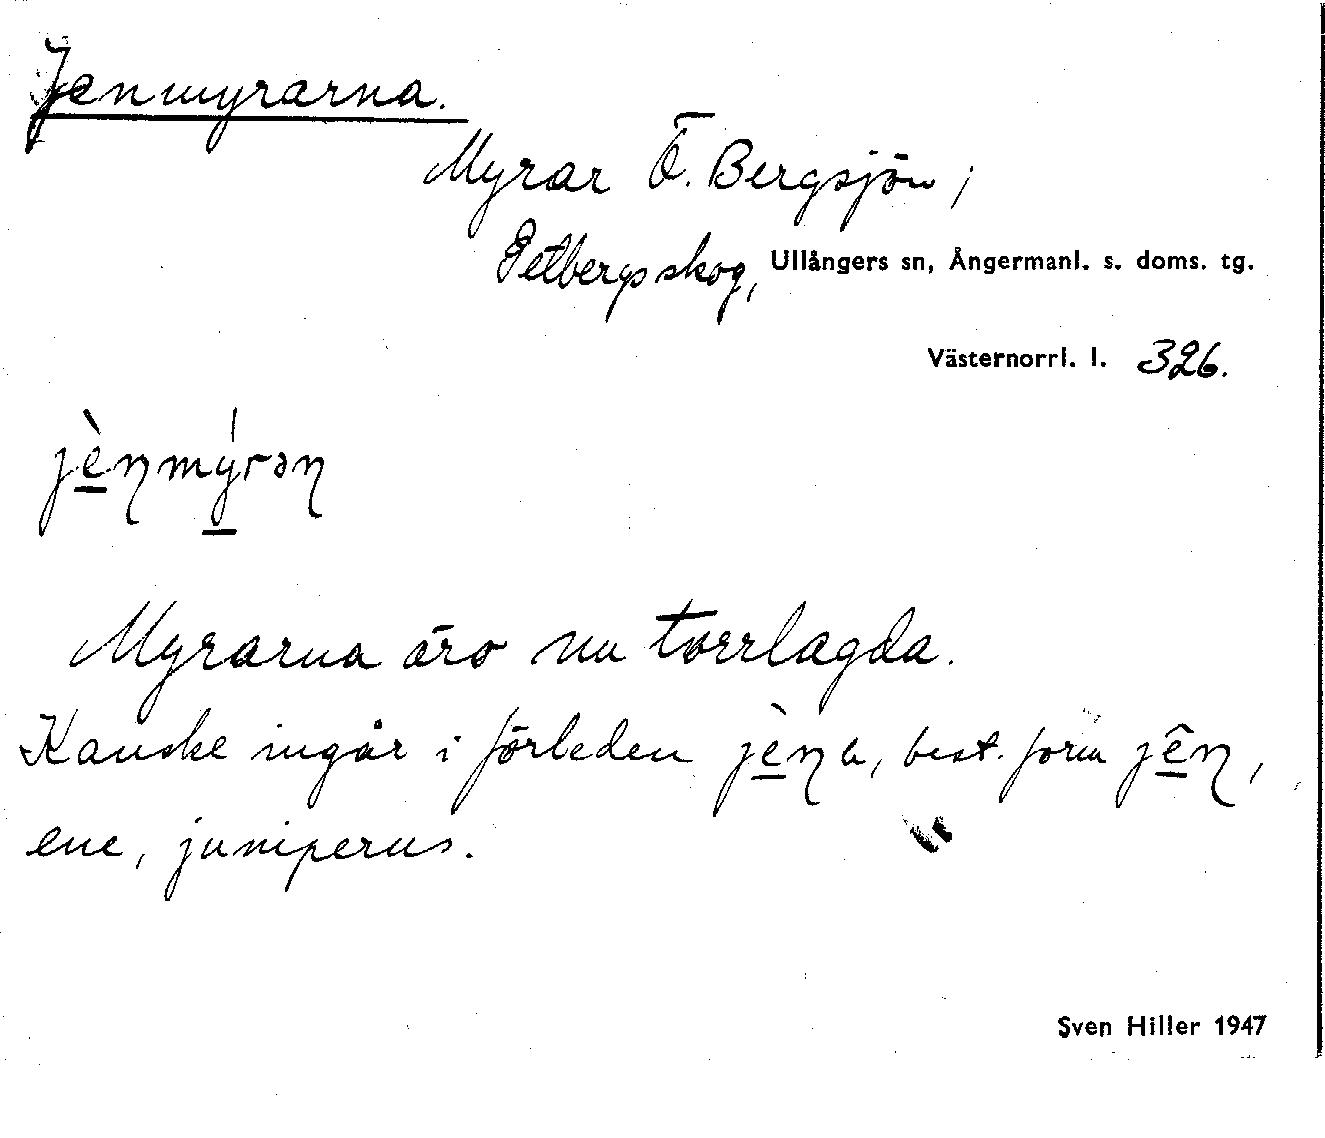 Jenmyrarna.
Myrar Ö. Bergsjön,
Getbergsskog, Ullångers sn, Ångermanl. s. doms. tg.
Västernorrl. l. 326.
jèn̥mýrən
Myrarna äro nu torrlagda.
Kanske ingår i förleden best. form
ene, juniperus.
Sven Hiller 1947